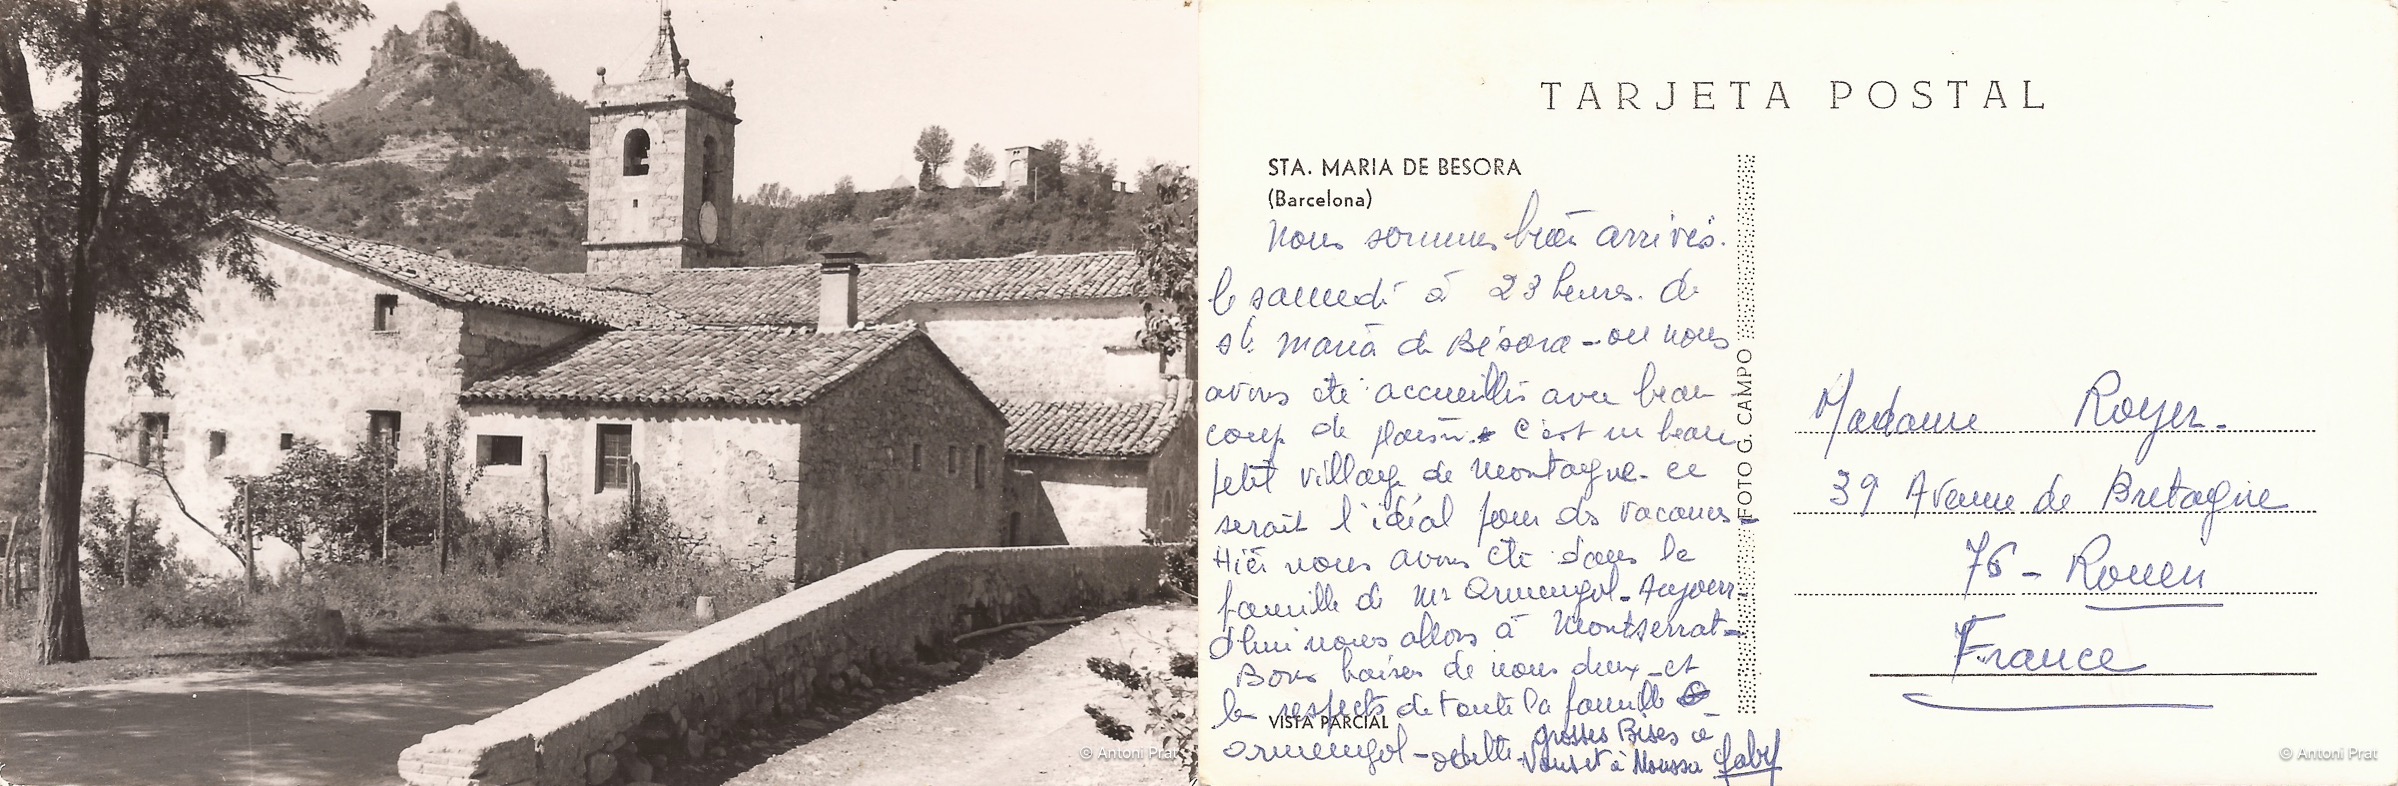 TARJETA POSTAL
STA. MARIA DE BESORA
(Barcelona)
Nous sommes bien arrivés.
le samedi à 23 heures. de
Sta. Maria de Bésora - ou nous
avons été accueillis avec beau
coup de plaisir. C'est un beau
petit village de montagne. ce
serait l'idéal pour des vacances -
Hier nous avons été dans la
famille de Mr Armengol - Aujour-
d'hui nous allons à Montserrat -
Bons baisers de nous deux - et
les respects de toute la famille
VISTA PARCIAL
Armengol - Odette
grosses Bises à
Vous et à Gaby
FOTO G. CAMPO
Madame Royer.
39 Avenue de Bretagne
76 - Rouen
France
© Antoni Prat
© Antoni Prat